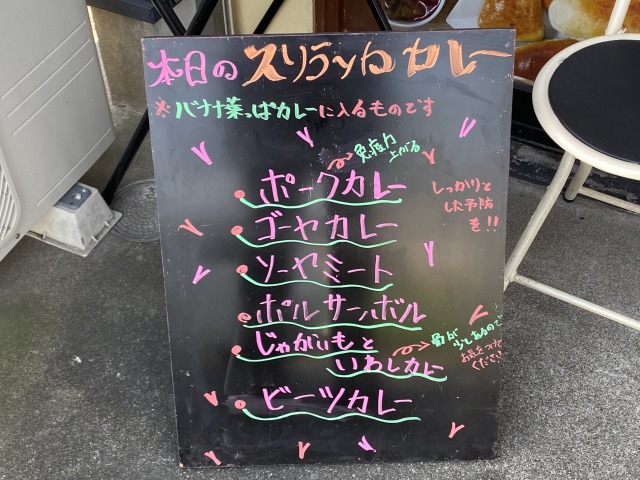 本日のスリランカカレー
※バナナ葉っぱカレーに入るものです
免疫力
上がる
ポークカレー
しっかりと
した予防
を!!
ゴーヤカレー
ソーヤミート
ポルサンボル
じゃがいもと
いわしカレー
骨が
少しあるので
お気をつけて
ください
ビーツカレー